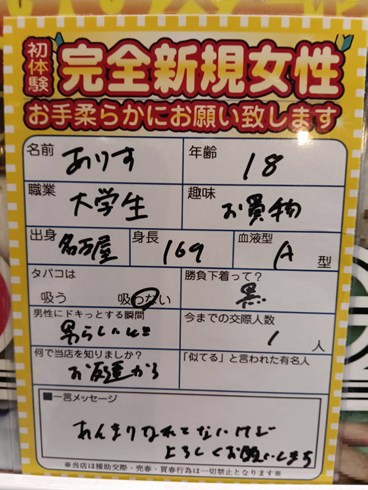 初体験 完全新規女性
お手柔らかにお願い致します
名前 ありす 年齢 18
職業 大学生 趣味 お買物
出身 名古屋 身長 169 血液型 A 型
タバコは 勝負下着って?
吸う 吸わない 黒
男性にドキっとする瞬間 今までの交際人数
男らしい 1 人
何で当店を知りましたか? 「似てる」と言われた有名人
お友達から
■一言メッセージ
あんまりなれてないけど
よろしくお願いします
※当店は援助交際・売春・買春行為は一切禁止となります※